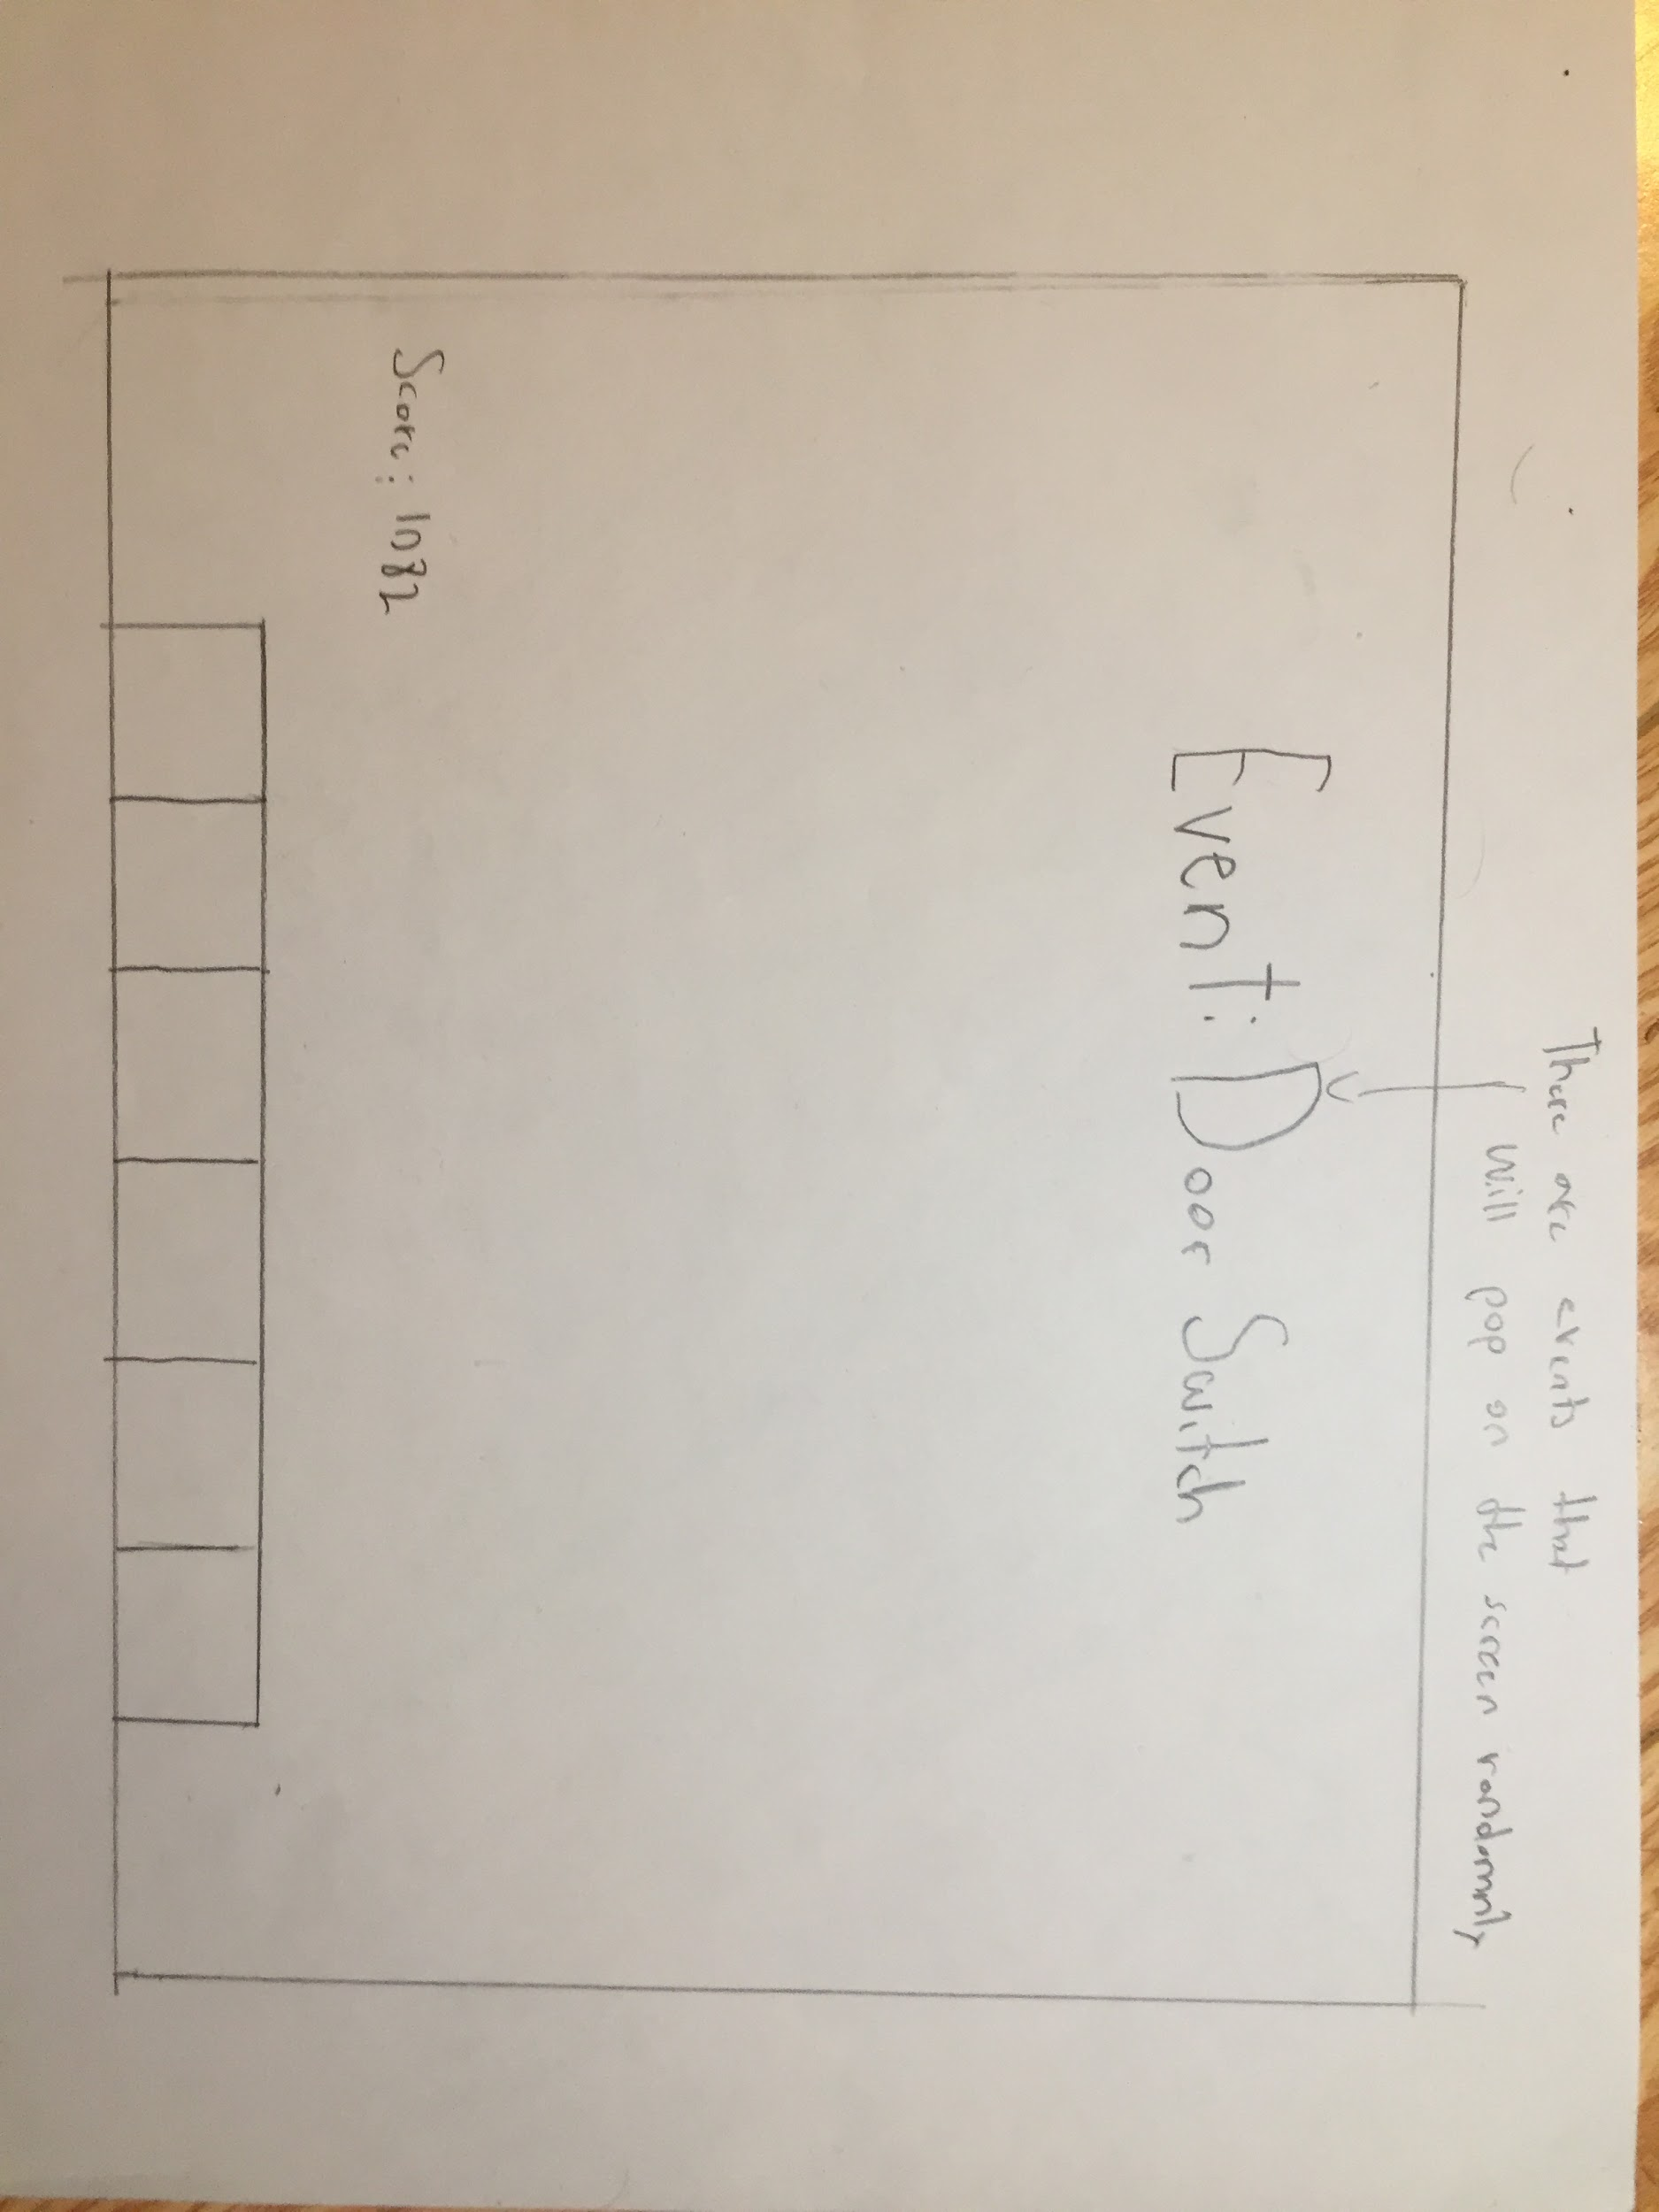 There are events that
will pop on the screen randomnly
Event: Door Switch
Score: 1082